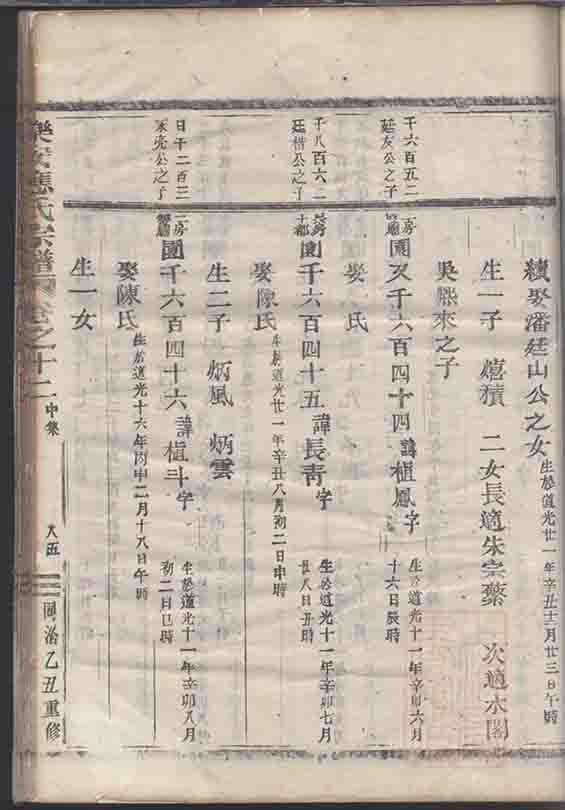 續娶潘廷山公之女 生於道光廿一年辛丑十二月廿三日午時
生一子 熺積 二女長適朱宗蘂 次適水閣
吳熙來之子
千六百五二
廷友公之子
二房
園又千六百四十四 諱植鳳 字
生於道光十一年辛卯六月
十六日辰時
娶 氏
千八百六二
廷楷公之子
園千六百四十五 諱長青 字
生於道光十一年辛卯七月
廿八日丑時
娶陳氏 生於道光廿一年辛丑八月初二日申時
生二子 炳風 炳雲
日千二百三
永亮公之子
二房
園千六百四十六 諱植斗 字
生於道光十一年辛卯八月
初二日巳時
娶陳氏 生於道光十六年丙申二月十八日午時
生一女
樂安應氏宗譜 卷之十二 中集 八五 同治乙丑重修